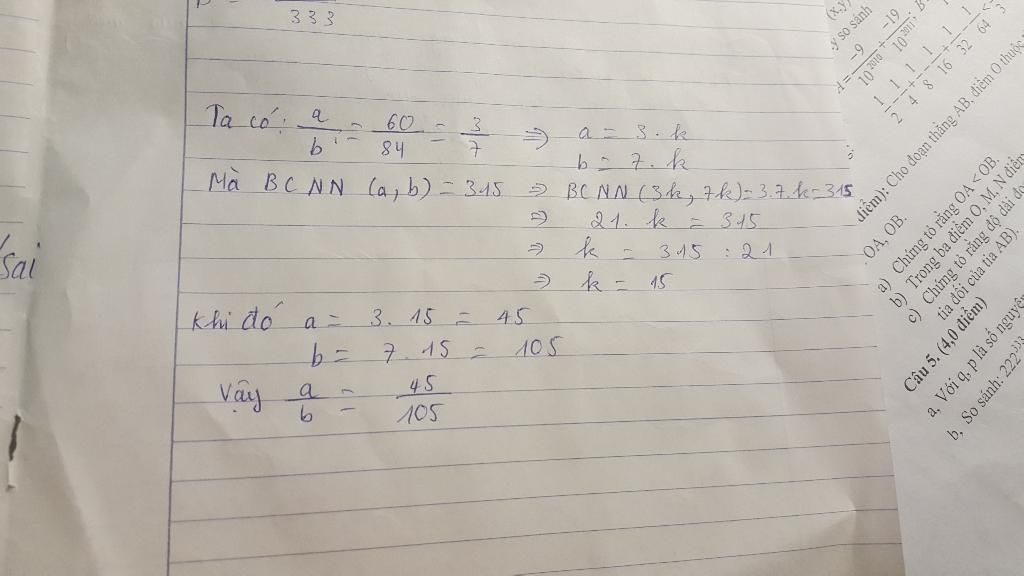 333
Ta có: a/b = 60/84 = 3/7 => a = 3. k
b = 7. k
Mà BCNN (a, b) = 315 => BCNN (3k, 7k) = 3.7.k = 315
=> 21. k = 315
=> k = 315 : 21
=> k = 15
Khi đó a = 3. 15 = 45
b = 7. 15 = 105
Vậy a/b = 45/105
Sai
(x,y)
so sánh
-9/10^2010 + -19/10^2011
1/2 - 1/4 + 1/8 - 1/16 + 1/32 - 1/64 < 1/3
điểm): Cho đoạn thẳng AB, điểm O thuộc
OA, OB.
a) Chứng tỏ rằng OA < OB.
b) Trong ba điểm O, M, N điểm
c) Chứng tỏ rằng độ dài đo
tia đối của tia AB).
Câu 5. (4,0 điểm)
a, Với q, p là số nguyên
b, So sánh: 222